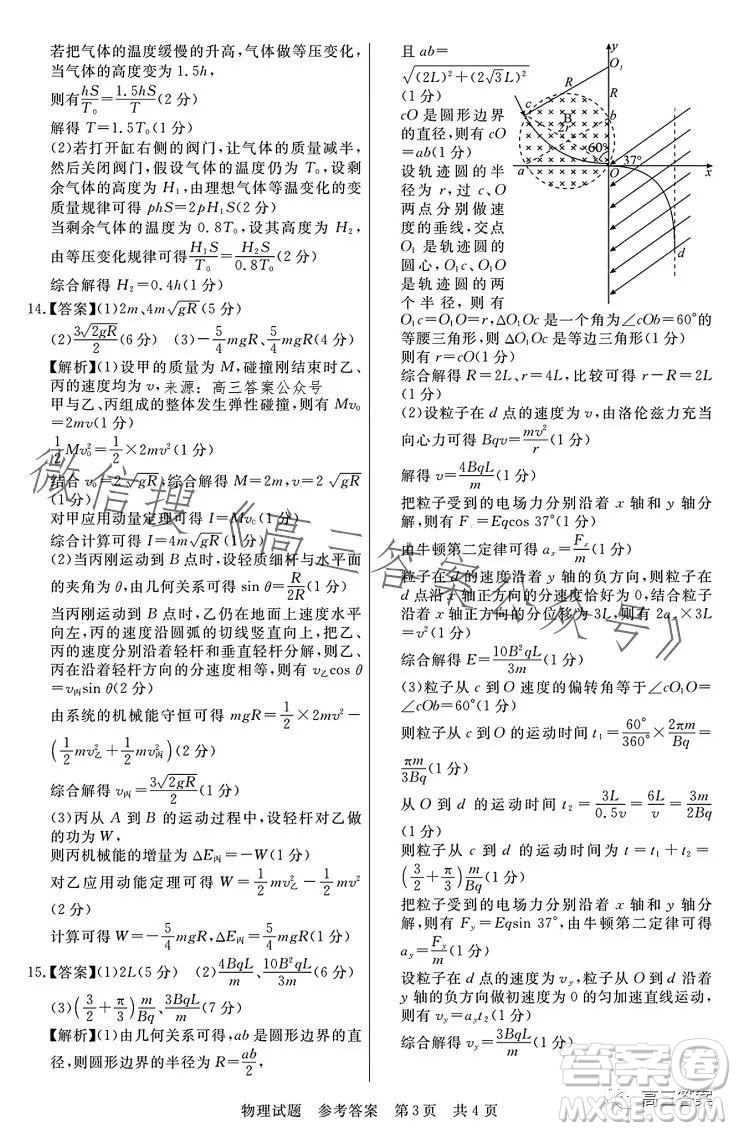 若把气体的温度缓慢的升高,气体做等压变化,
当气体的高度变为 1.5h,
则有hS/T₀=1.5hS/T(2 分)
解得 T=1.5T₀(1 分)
(2)若打开缸右侧的阀门,让气体的质量减半,
然后关闭阀门,假设气体的温度仍为 T₀,设剩
余气体的高度为 H₁,由理想气体等温变化的变
质量规律可得 phS=2pH₁S(2 分)
当剩余气体的温度为 0.8T₀,设其高度为 H₂,
由等压变化规律可得H₁S/T₀=H₂S/0.8T₀(2 分)
综合解得 H₂=0.4h(1 分)
14.【答案】(1)2m、4m√gR(5 分)
(2)3√2gR/2(6 分) (3)-5/4mgR、5/4mgR(4 分)
【解析】(1)设甲的质量为 M,碰撞刚结束时乙、
丙的速度均为 v,来源:高三答案公众号
甲与乙、丙组成的整体发生弹性碰撞,则有 Mv₀
=2mv(1 分)
1/2Mv₀²=1/2×2mv²(1 分)
结合 v₀=2√gR,综合解得 M=2m,v=2√gR
(1 分)
对甲应用动量定理可得 I=Mv₀(1 分)
综合计算可得 I=4m√gR(1 分)
(2)当丙刚运动到 B 点时,设轻质细杆与水平面
的夹角为 θ,由几何关系可得 sin θ=R/2R(1 分)
当丙刚运动到 B 点时,乙仍在地面上速度水平
向左,丙的速度沿圆弧的切线竖直向上,把乙、
丙的速度分别沿着轻杆和垂直轻杆分解,则乙、
丙在沿着轻杆方向的分速度相等,则有 v乙cos θ
=v丙sin θ(2 分)
由系统的机械能守恒可得 mgR=1/2×2mv²-
(1/2mv乙²+1/2mv丙²)(1 分)
综合解得 v丙=3√2gR/2(1 分)
(3)丙从 A 到 B 的运动过程中,设轻杆对乙做
的功为 W,
则丙机械能的增量为 ΔE丙=-W(1 分)
对乙应用动能定理可得 W=1/2mv乙²-1/2mv²
(2 分)
计算可得 W=-5/4mgR、ΔE丙=5/4mgR(1 分)
15.【答案】(1)2L(5 分) (2)4BqL/m、10B²qL/3m(6 分)
(3)(3/2+π/3)m/Bq、3BqL/m(7 分)
【解析】(1)由几何关系可得,ab 是圆形边界的直
径,则圆形边界的半径为 R=ab/2,
且 ab=
√(2L)²+(2√3L)²
(1 分)
cO 是圆形边界
的直径,则有 cO
=ab(1 分)
设轨迹圆的半
径为 r,过 c、O
两点分别做速
度的垂线,交点
O₁ 是轨迹圆的
圆心,O₁c、O₁O
是轨迹圆的两
个半径,则有
y
O₁
R
R
c
B
b
2r
60°
37°
a
O
x
d
O₁c=O₁O=r,ΔO₁Oc 是一个角为∠cOb=60°的
等腰三角形,ΔO₁Oc 是等边三角形(1 分)
则有 r=cO(1 分)
综合解得 R=2L、r=4L,比较可得 r-R=2L(1 分)
(2)设粒子在 d 点的速度为 v,由洛伦兹力充当
向心力可得 Bqv=mv²/r(1 分)
解得 v=4BqL/m(1 分)
把粒子受到的电场力分别沿着 x 轴和 y 轴分
解,则有 Fₓ=Eqcos 37°(1 分)
由牛顿第二定律可得 aₓ=Fₓ/m(1 分)
粒子在 d 的速度沿着 y 轴的负方向,则粒子在
d 点沿 x 轴正方向的分速度恰好为 0,结合粒子
沿着 x 轴正方向的分位移为 3L,则有 2aₓ×3L
=v²(1 分)
综合解得 E=10B²qL/3m(1 分)
(3)粒子从 c 到 O 速度的偏转角等于∠cO₁O=
∠cOb=60°(1 分)
则粒子从 c 到 O 的运动时间 t₁=60°/360°×2πm/Bq=
πm/3Bq(1 分)
从 O 到 d 的运动时间 t₂=3L/0.5v=6L/v=3m/2Bq
(1 分)
则粒子从 c 到 d 的运动时间为 t=t₁+t₂=
(3/2+π/3)m/Bq(1 分)
把粒子受到的电场力分别沿着 x 轴和 y 轴分
解,则有 Fᵧ=Eqsin 37°,由牛顿第二定律可得
aᵧ=Fᵧ/m(1 分)
设粒子在 d 点的速度为 vᵧ,粒子从 O 到 d 沿着
y 轴的负方向做初速度为 0 的匀加速直线运动,
则有 vᵧ=aᵧt₂(1 分)
综合解得 vᵧ=3BqL/m(1 分)
物理试题 参考答案 第 3 页 共 4 页
微信搜《高三答案公众号》
高三答案
答案卷
MXQE.COM